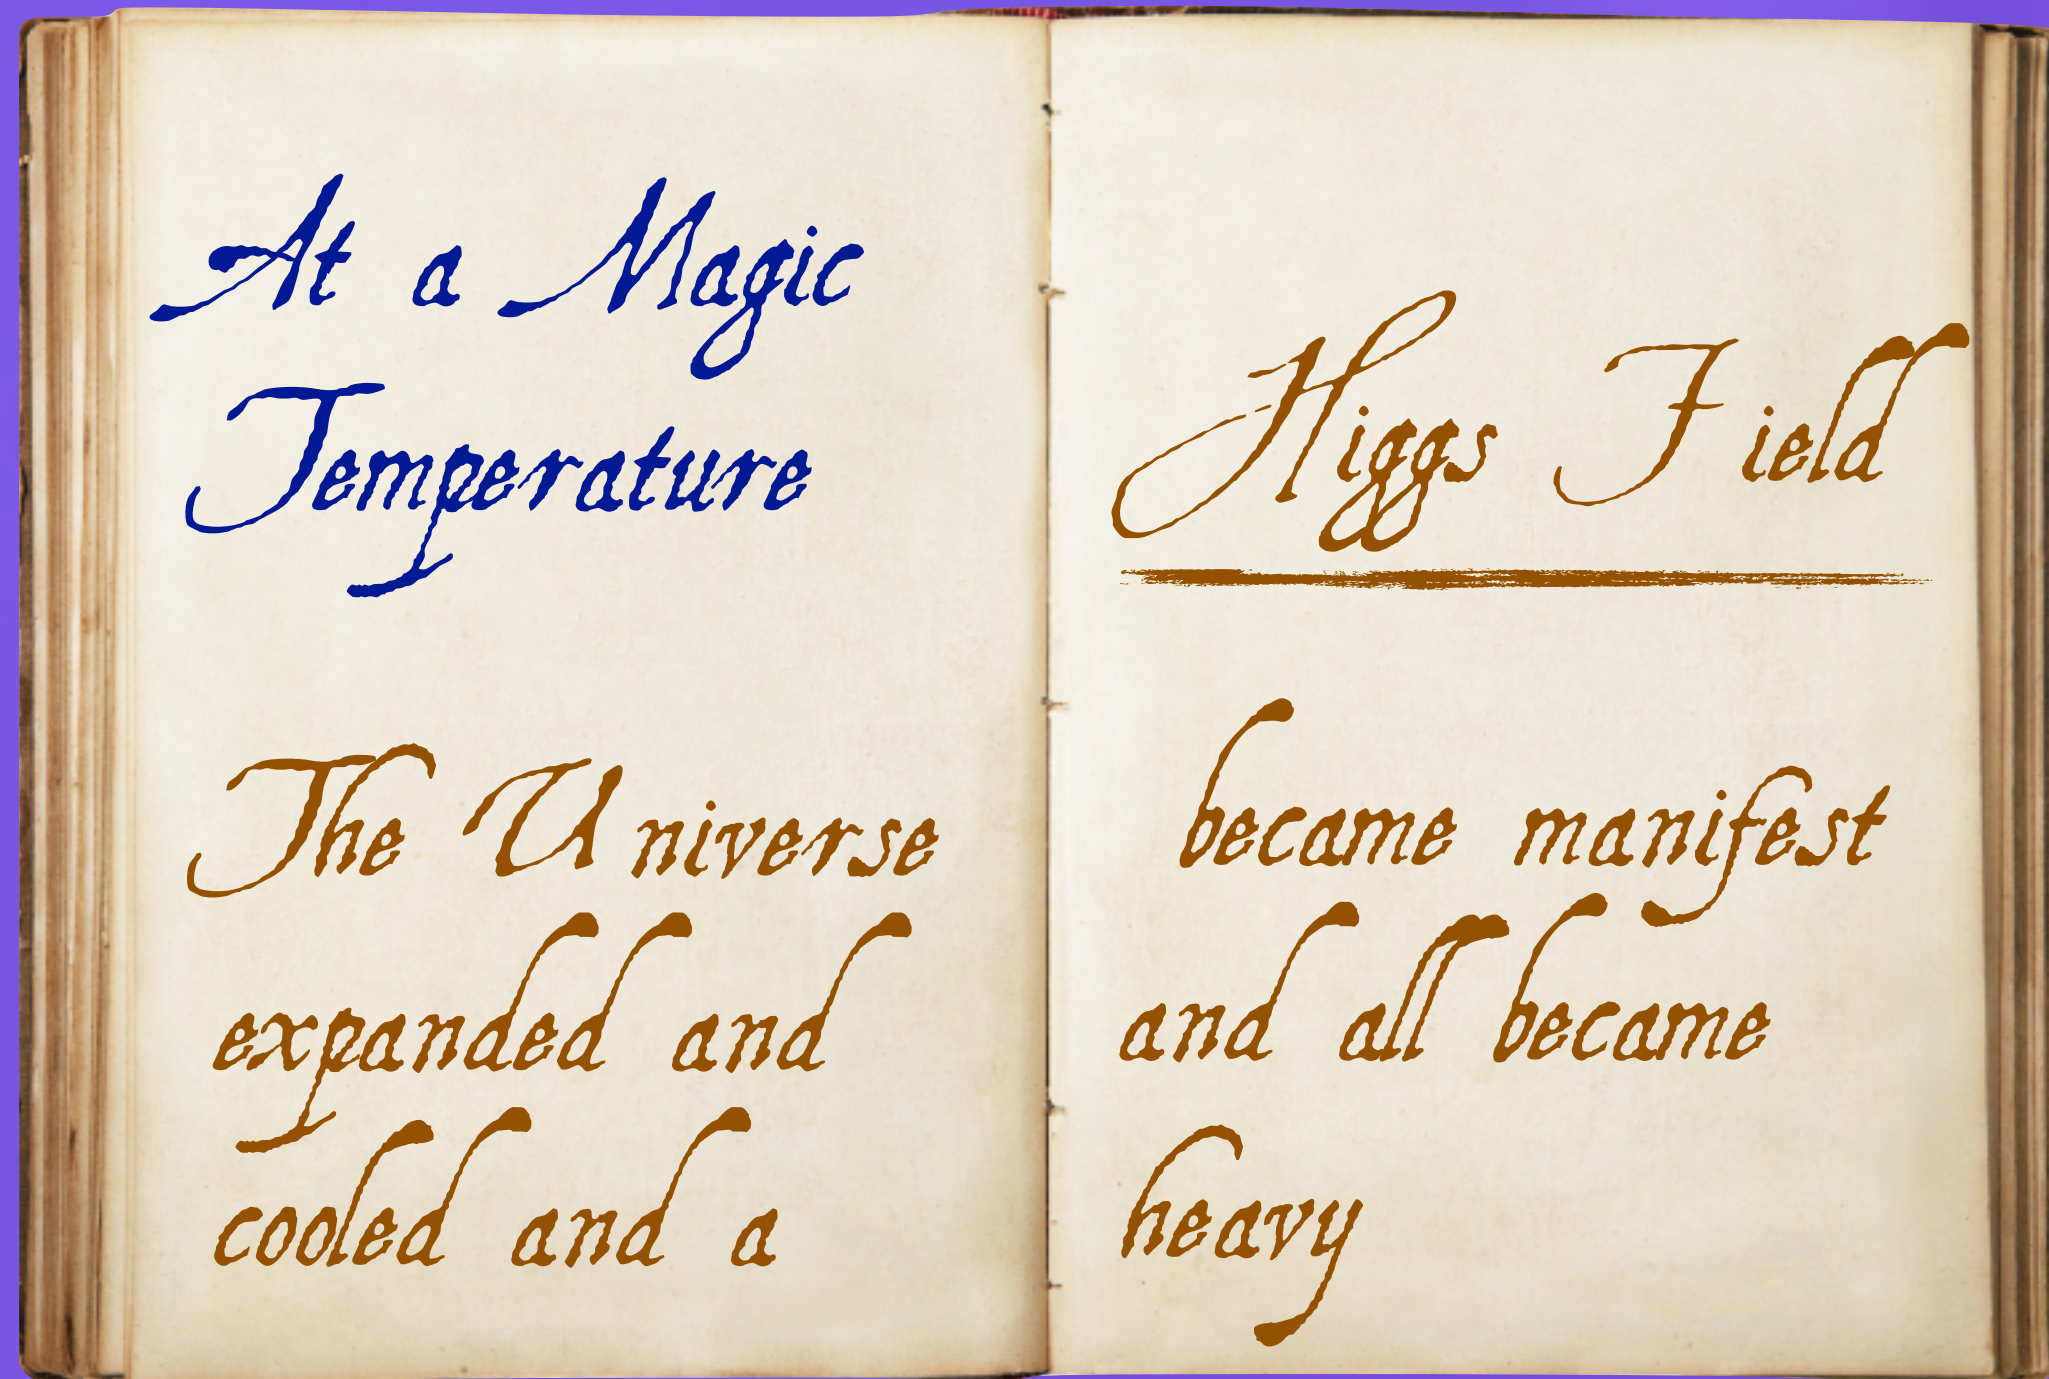 At a Magic
Temperature
The Universe
expanded and
cooled and a
Higgs Field
became manifest
and all became
heavy